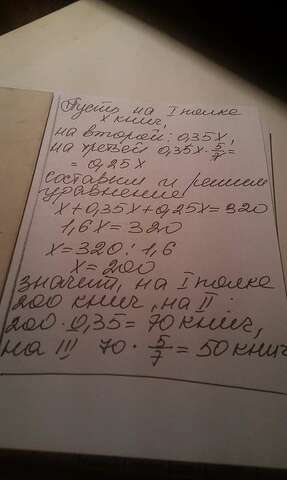 Пусть на I полке
x книг,
на второй: 0,35x,
на третьей 0,35x · 5/7 =
= 0,25x
составим и решим
уравнение
x+0,35x+0,25x=320
1,6x=320
x=320:1,6
x=200
значит, на I полке
200 книг, на II:
200 · 0,35= 70 книг,
на III 70 · 5/7 = 50 книг